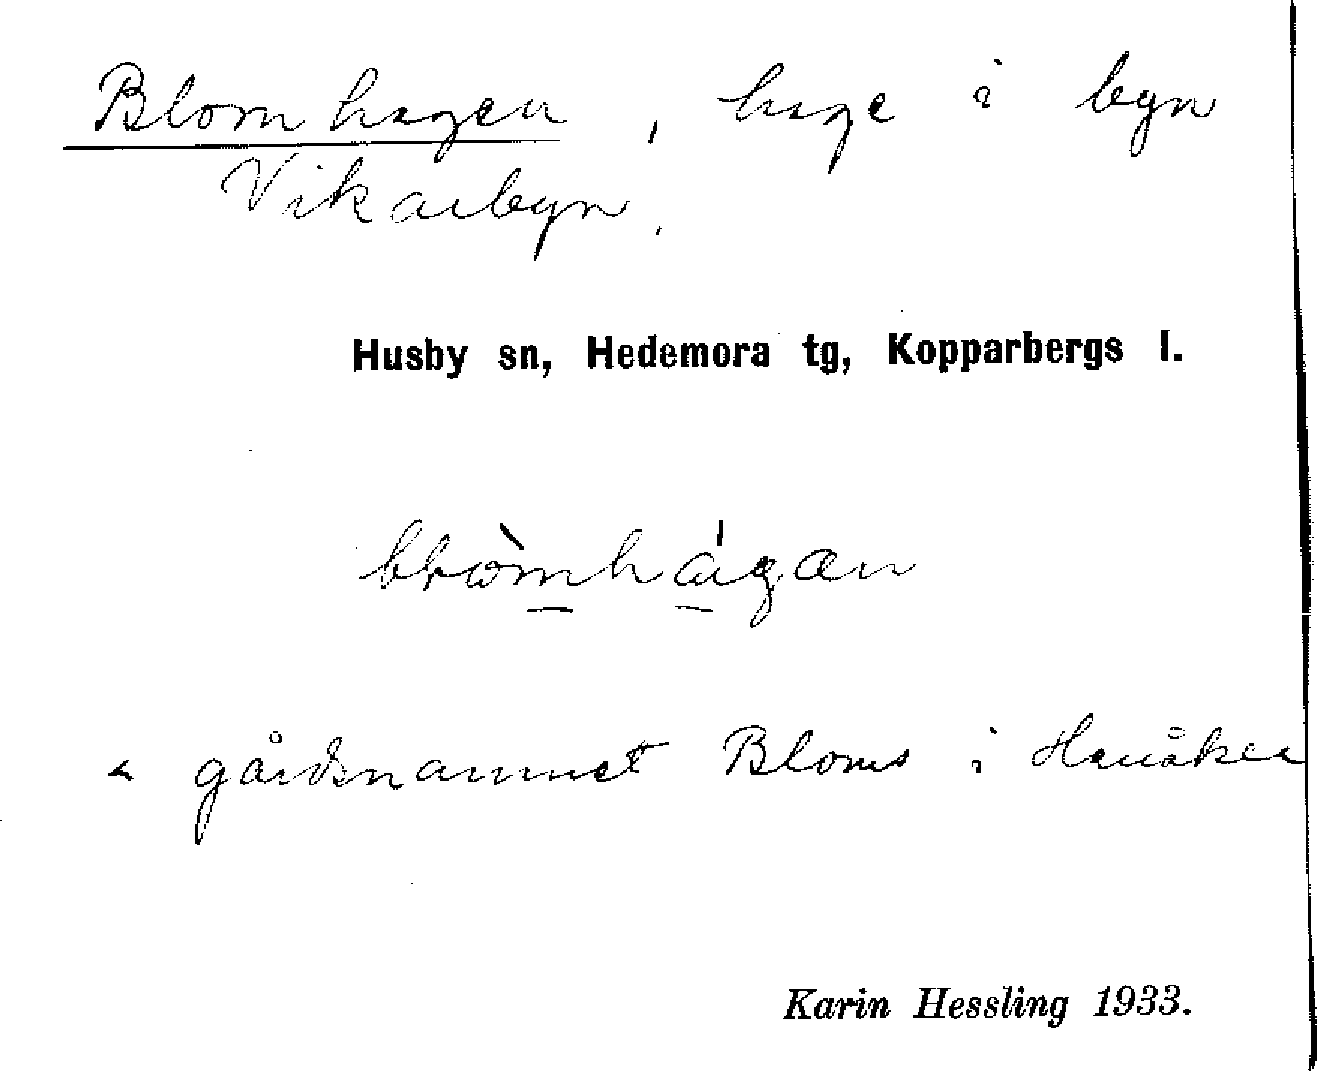 Blomhagen, hage i byn
Vikarbyn.
Husby sn, Hedemora tg, Kopparbergs l.
< gårdsnamnet Bloms i
Karin Hessling 1933.